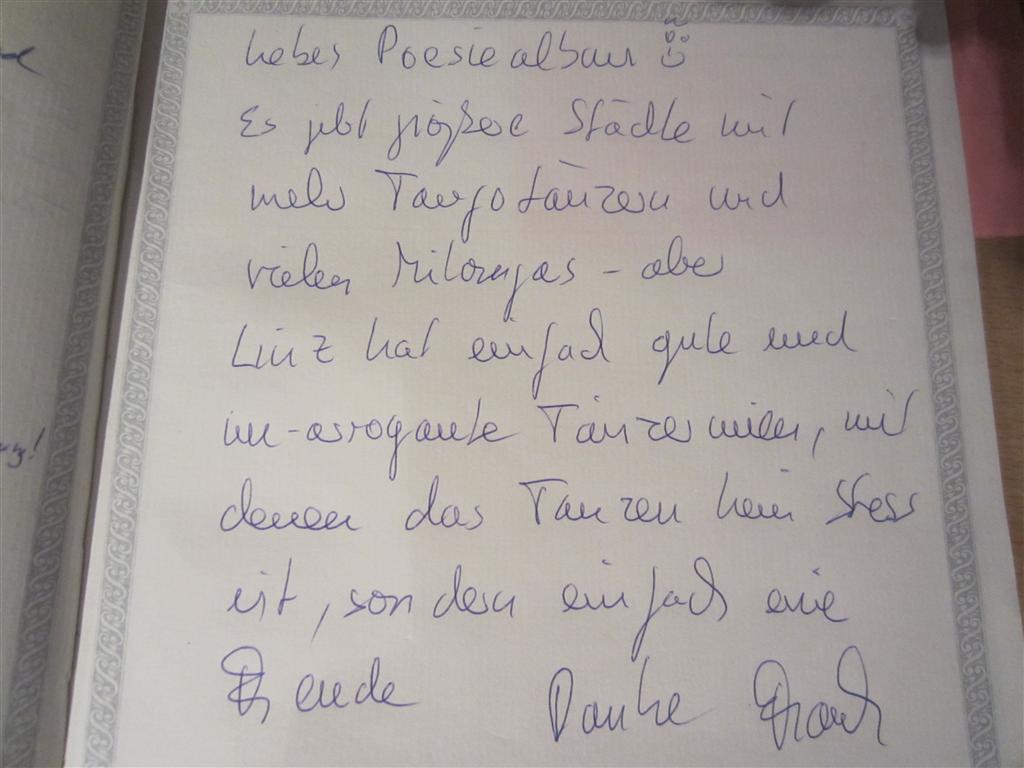 liebes Poesiealbum
Es gibt größere Städte mit
mehr Tangotänzern und
vielen Milongas - aber
Linz hat einfach gute und
un-arrogante Tänzerinnen, mit
denen das Tanzen kein Stress
ist, sondern einfach eine
Freude Danke